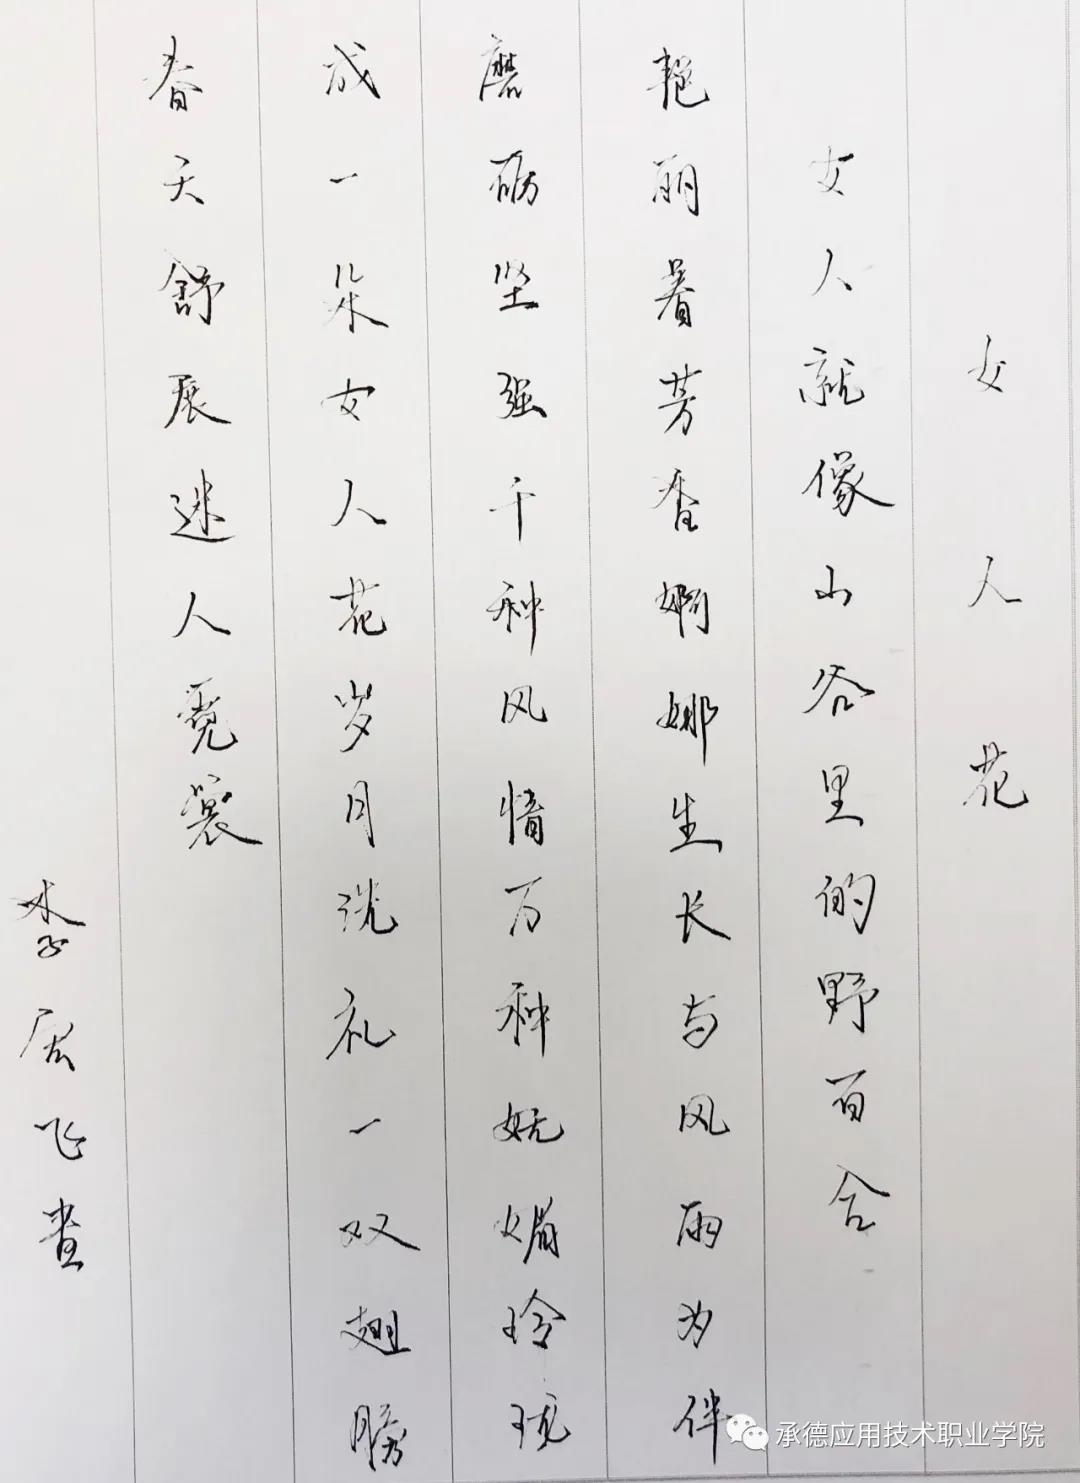 女人花
女人就像山谷里的野百合
艳丽着芳香婀娜生长与风雨为伴
磨砺坚强千种风情万种妩媚玲珑
成一朵女人花岁月洗礼一双翅膀
春天舒展迷人霓裳
李居飞书
承德应用技术职业学院